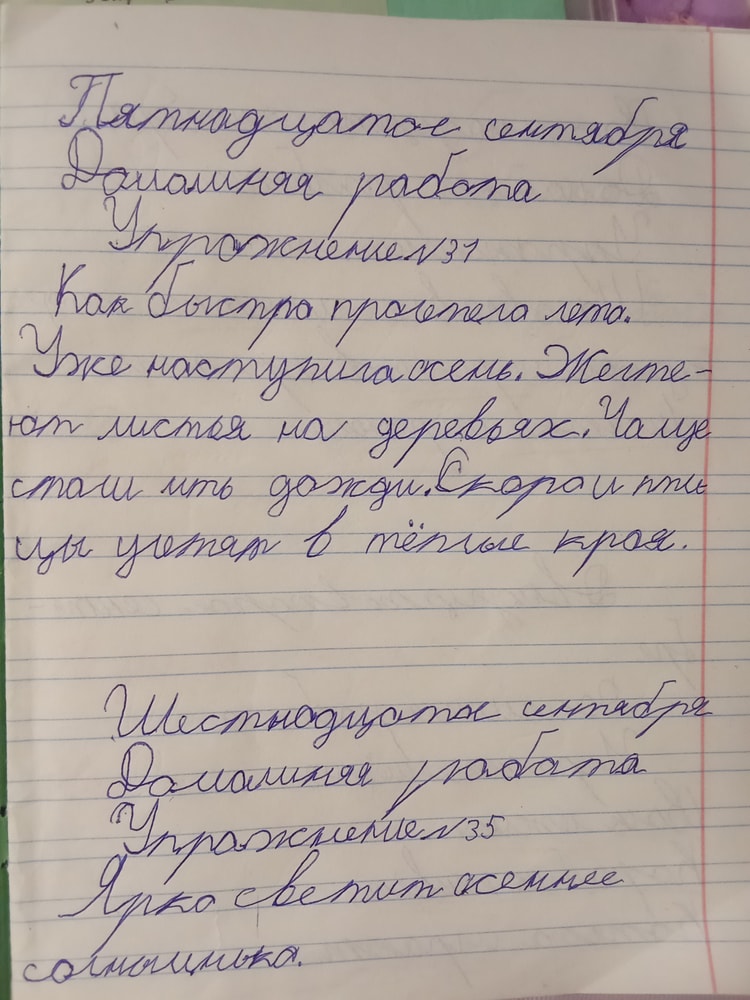 Пятнадцатое сентября
Домашняя работа
Упражнение №31
Как быстро пролетело лето.
Уже наступила осень. Желте-
ют листья на деревьях. Чаще
стали ить дожди. Скоро и пти
цы улетят в тёплые края.
Шестнадцатое сентября
Домашняя работа
Упражнение №35
Ярко светит осеннее
солнышько.